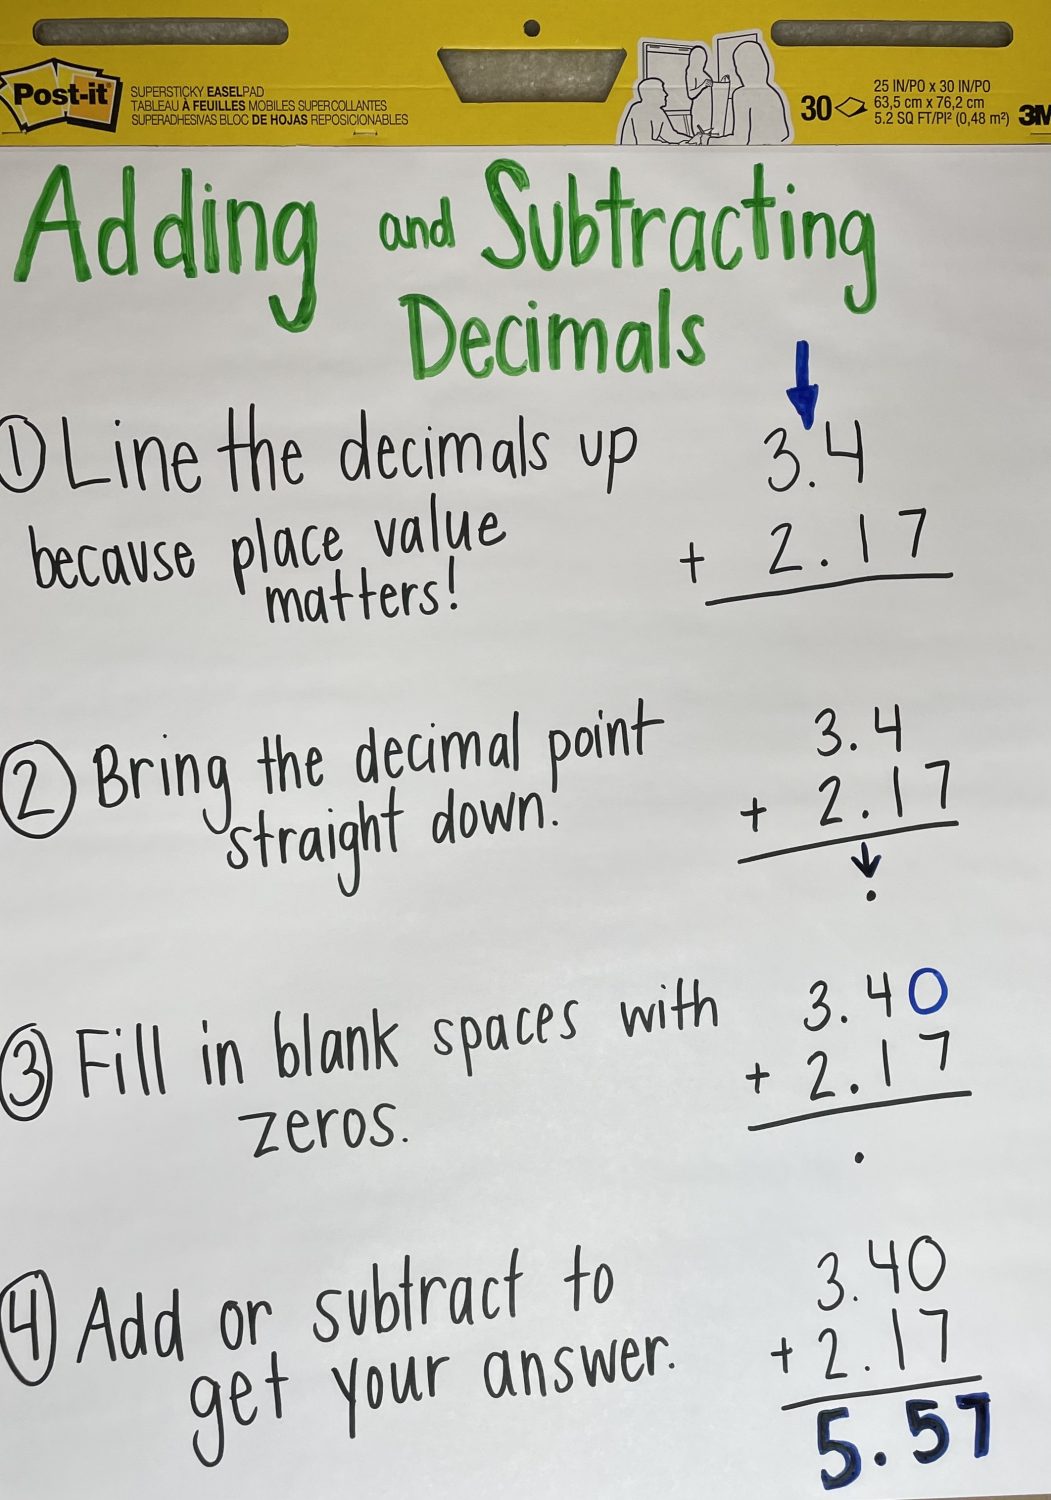 Post-it
SUPERSTICKY EASELPAD
TABLEAU À FEUILLES MOBILES SUPERCOLLANTES
SUPERADHESIVAS BLOC DE HOJAS REPOSICIONABLES
30
25 IN/PO x 30 IN/PO
63,5 cm x 76,2 cm
5.2 SQ FT/PI² (0,48 m²)
3M
Adding and Subtracting
Decimals
① Line the decimals up
because place value
matters!
3.4
+ 2.17
② Bring the decimal point
straight down!
3.4
+ 2.17
.
③ Fill in blank spaces with
zeros.
3.40
+ 2.17
.
④ Add or subtract to
get your answer.
3.40
+ 2.17
5.57